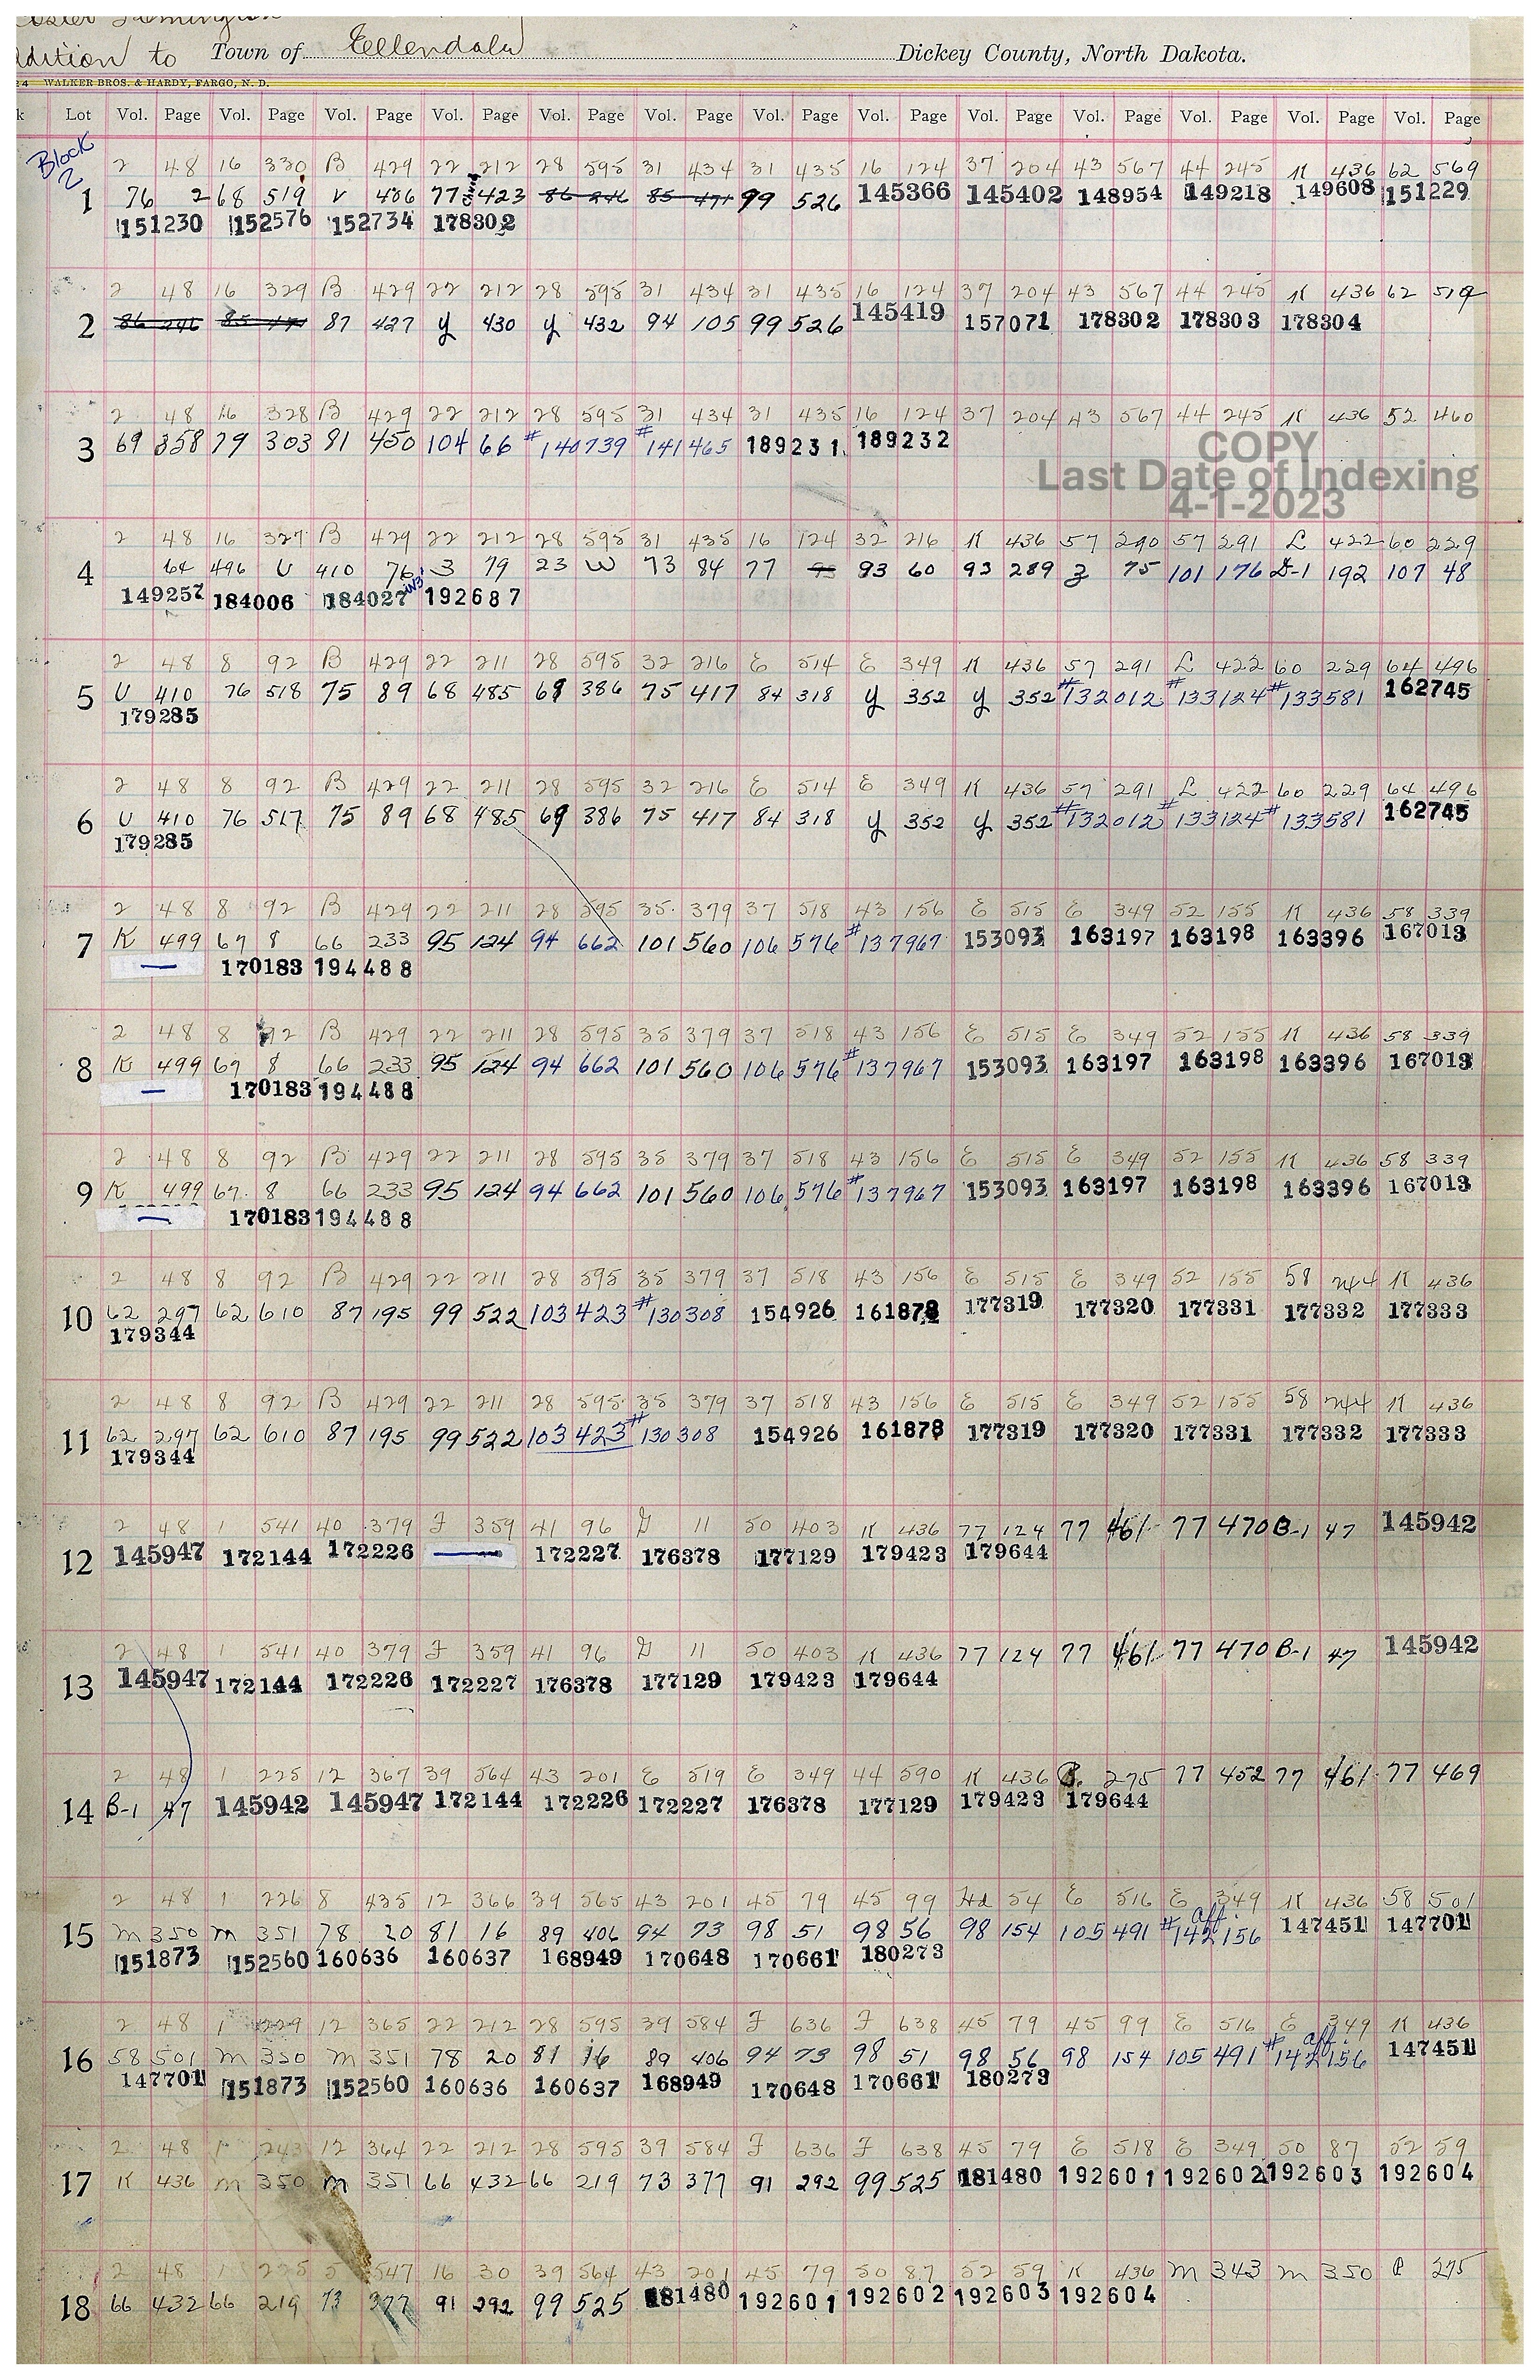 Addition to Town of Ellendale Dickey County, North Dakota.
24 WALKER BROS. & HARDY, FARGO, N. D.
k Lot Vol. Page Vol. Page Vol. Page Vol. Page Vol. Page Vol. Page Vol. Page Vol. Page Vol. Page Vol. Page Vol. Page Vol. Page Vol. Page
Block 2
2 48 16 330 B 429 22 212 28 595 31 434 31 435 16 124 37 204 43 567 44 245 K 436 62 569
1 76 2 68 519 V 486 77 423 86 246 85 471 99 526 145366 145402 148954 149218 149608 151229
151230 152576 152734 178302
2 48 16 329 B 429 22 212 28 595 31 434 31 435 16 124 37 204 43 567 44 245 K 436 62 519
2 86 246 85 471 87 427 y 430 y 432 94 105 99 526 145419 157071 178302 178303 178304
2 48 16 328 B 429 22 212 28 595 31 434 31 435 16 124 37 204 43 567 44 245 K 436 52 460
3 69 358 79 303 81 450 104 66 #140739 #141465 189231 189232
COPY
Last Date of Indexing
4-1-2023
2 48 16 327 B 429 22 212 28 595 31 435 16 124 32 216 K 436 57 290 57 291 L 422 60 229
4 64 496 U 410 76 3 79 23 W 73 84 77 93 93 60 93 289 z 75 101 176 D-1 192 107 48
149257 184006 184027 192687
2 48 8 92 B 429 22 211 28 595 32 216 E 514 E 349 K 436 57 291 L 422 60 229 64 496
5 U 410 76 518 75 89 68 485 69 386 75 417 84 318 y 352 y 352 #132012 #133124 #133581 162745
179285
2 48 8 92 B 429 22 211 28 595 32 216 E 514 E 349 K 436 57 291 L 422 60 229 64 496
6 U 410 76 517 75 89 68 485 69 386 75 417 84 318 y 352 y 352 #132012 #133124 #133581 162745
179285
2 48 8 92 B 429 22 211 28 595 35 379 37 518 43 156 E 515 E 349 52 155 K 436 58 339
7 K 499 67 8 66 233 95 124 94 662 101 560 106 576 #137967 153093 163197 163198 163396 167013
— 170183 194488
2 48 8 92 B 429 22 211 28 595 35 379 37 518 43 156 E 515 E 349 52 155 K 436 58 339
8 K 499 67 8 66 233 95 124 94 662 101 560 106 576 #137967 153093 163197 163198 163396 167013
— 170183 194488
2 48 8 92 B 429 22 211 28 595 35 379 37 518 43 156 E 515 E 349 52 155 K 436 58 339
9 K 499 67 8 66 233 95 124 94 662 101 560 106 576 #137967 153093 163197 163198 163396 167013
— 170183 194488
2 48 8 92 B 429 22 211 28 595 35 379 37 518 43 156 E 515 E 349 52 155 58 244 K 436
10 62 297 62 610 87 195 99 522 103 423 #130308 154926 161878 177319 177320 177331 177332 177333
179344
2 48 8 92 B 429 22 211 28 595 35 379 37 518 43 156 E 515 E 349 52 155 58 244 K 436
11 62 297 62 610 87 195 99 522 103 423 #130308 154926 161878 177319 177320 177331 177332 177333
179344
2 48 1 541 40 379 F 359 41 96 G 11 50 403 K 436 77 124 77 461 77 470 B-1 47 145942
12 145947 172144 172226 — 172227 176378 177129 179423 179644
2 48 1 541 40 379 F 359 41 96 G 11 50 403 K 436 77 124 77 461 77 470 B-1 47 145942
13 145947 172144 172226 172227 176378 177129 179423 179644
2 48 1 225 12 367 39 564 43 201 E 519 E 349 44 590 K 436 P. 275 77 452 77 461 77 469
14 B-1 47 145942 145947 172144 172226 172227 176378 177129 179423 179644
2 48 1 226 8 435 12 366 39 565 43 201 45 79 45 99 Hd 54 E 516 E 349 K 436 58 501
15 M 350 M 351 78 20 81 16 89 406 94 73 98 51 98 56 98 154 105 491 #142156 aff. 147451 147701
151873 152560 160636 160637 168949 170648 170661 180273
2 48 1 229 12 365 22 212 28 595 39 584 F 636 F 638 45 79 45 99 E 516 E 349 K 436
16 58 501 M 350 M 351 78 20 81 16 89 406 94 73 98 51 98 56 98 154 105 491 #142156 aff. 147451
147701 151873 152560 160636 160637 168949 170648 170661 180273
2 48 1 243 12 364 22 212 28 595 39 584 F 636 F 638 45 79 E 518 E 349 50 87 52 59
17 K 436 M 350 M 351 66 432 66 219 73 377 91 292 99 525 181480 192601 192602 192603 192604
2 48 1 225 5 547 16 30 39 564 43 201 45 79 50 87 52 59 K 436 M 343 M 350 P 275
18 66 432 66 219 73 377 91 292 99 525 181480 192601 192602 192603 192604